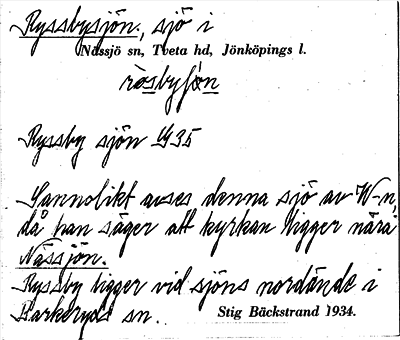 Ryssbysjön, sjö i
Nässjö sn, Tveta hd, Jönköpings l.
rösbyſön
Ryssby sjön G35
Sannolikt avses denna sjö av W-n,
då han säger att kyrkan ligger nära
Nässjön.
Ryssby ligger vid sjöns nordände i
Barkeryds sn. Stig Bäckstrand 1934.